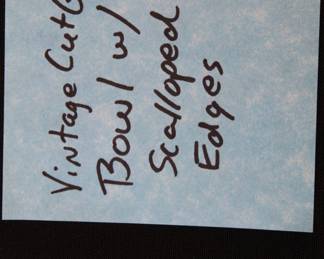 Vintage Cut G
Bowl w/
Scalloped
Edges